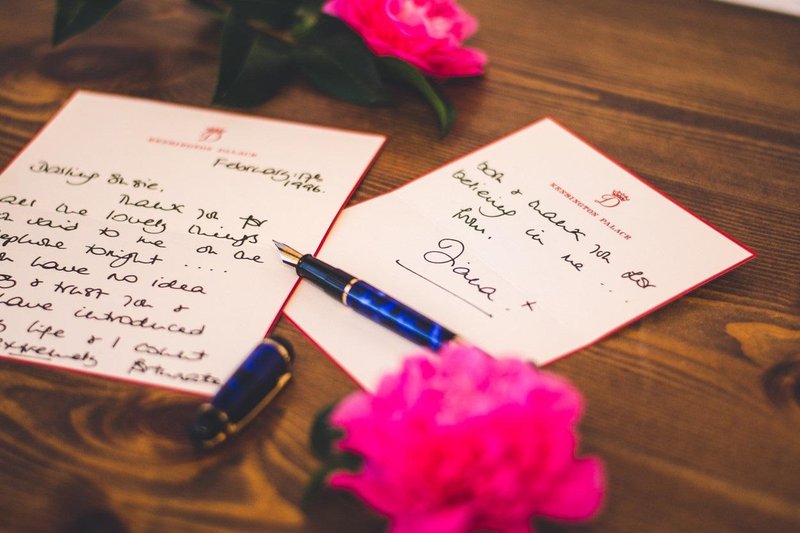 D
KENSINGTON PALACE
February, 17th
1996.
Darling Susie,
Thank you for
all the lovely things
said to me on the
telephone tonight ....
have no idea
& trust you &
have introduced
life & I count
extremely fortunate
D
KENSINGTON PALACE
& thank you for
believing in me ...
from,
Diana. x